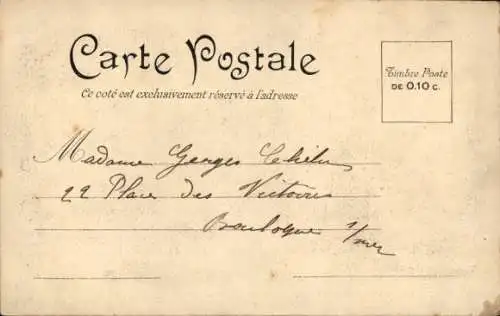 Carte Postale
Ce coté est exclusivement réservé à l'adresse
Timbre Poste
DE 0.10 C.
Madame Georges
22 Place des Victoires
Boulogne s/mer